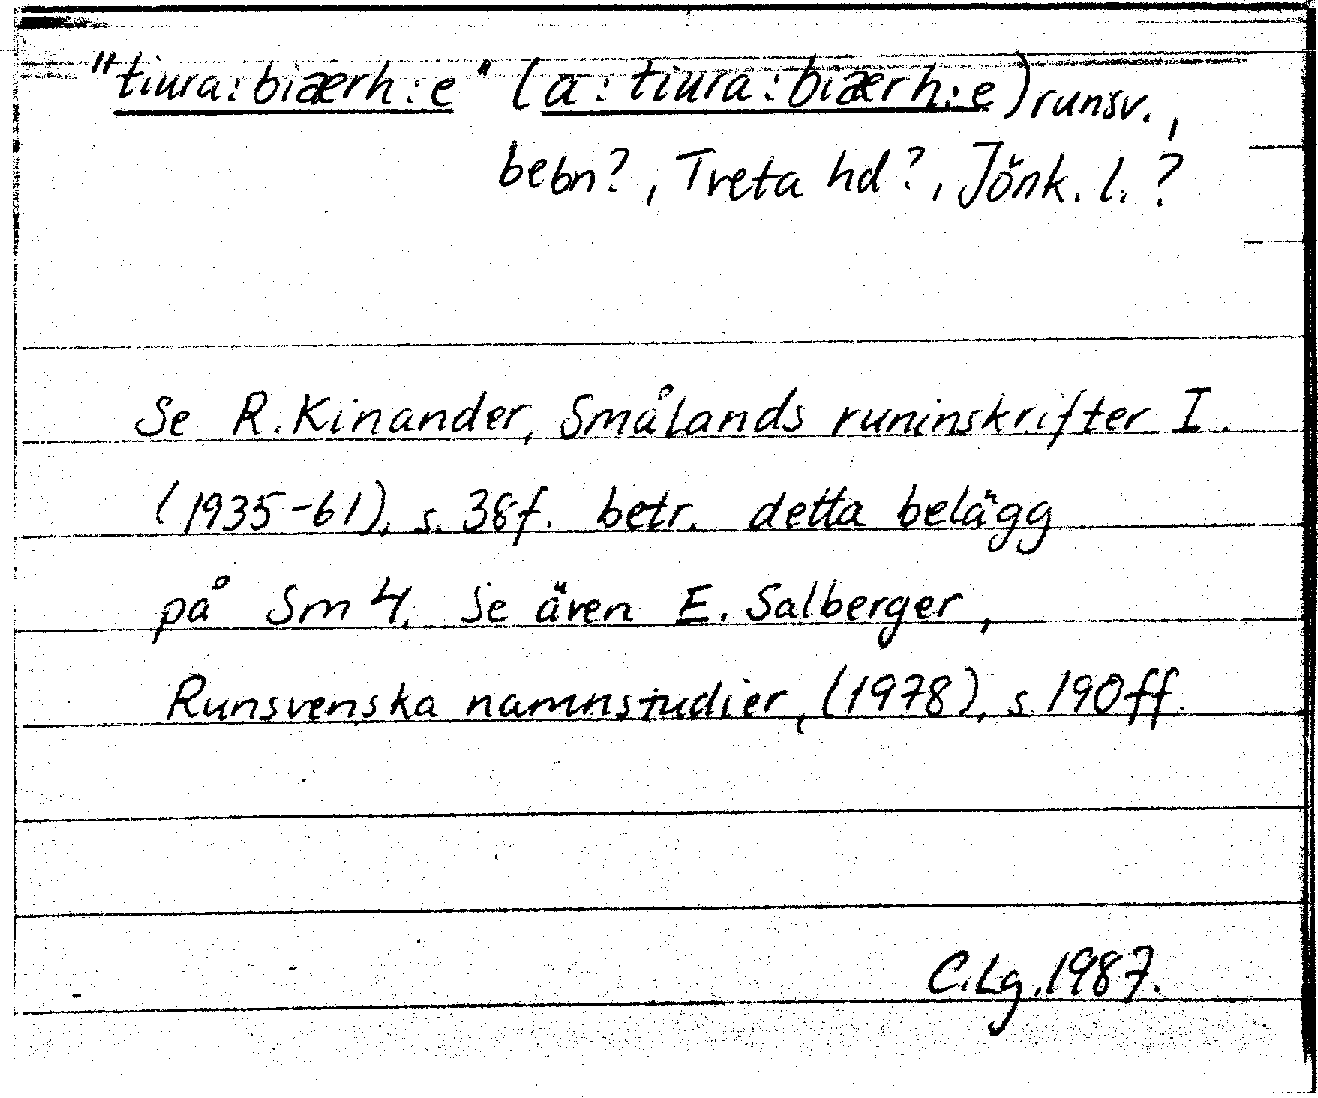 "tiura:biærh:e" (a: tiura:biærh:e) runsv.,
bebn?, Treta hd?, Jönk. l.?
Se R. Kinander, Smålands runinskrifter I.
(1935-61), s. 38f. betr. detta belägg
på Sm 4. Se även E. Salberger,
Runsvenska namnstudier, (1978), s. 190ff.
C.Lg. 1987.